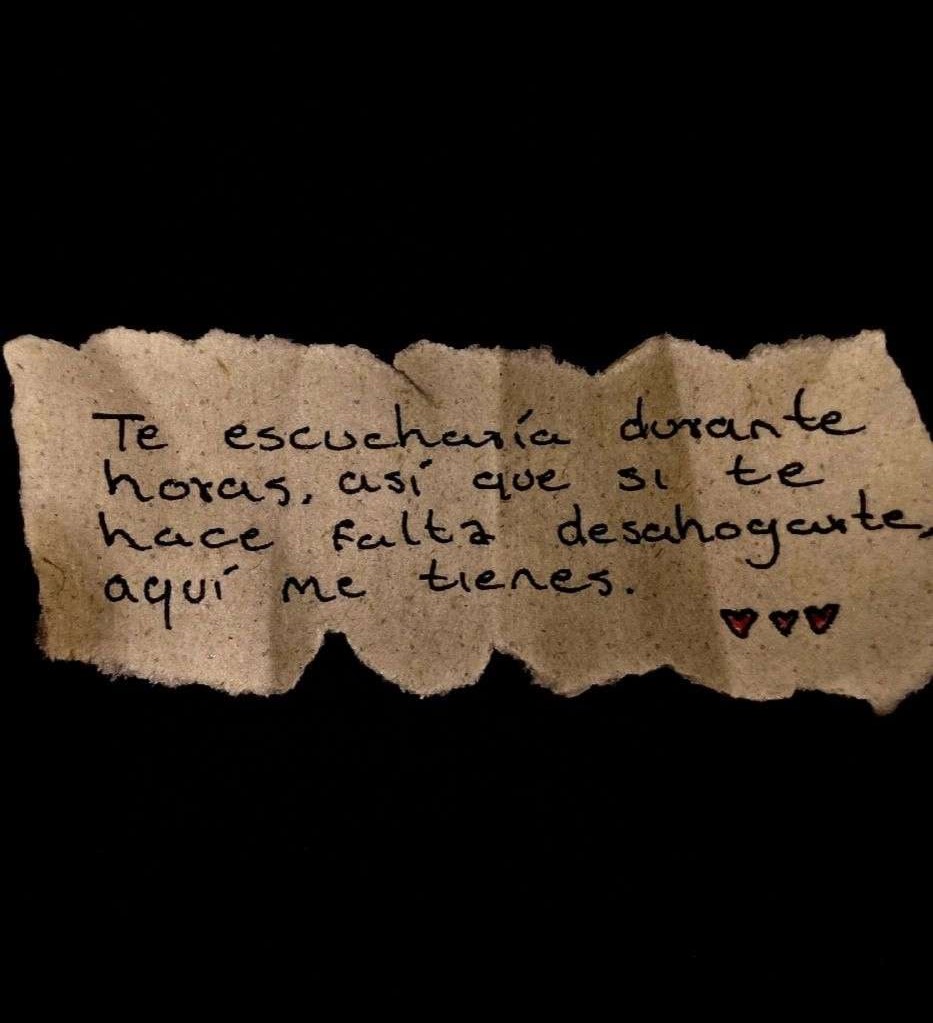 Te escucharía durante
horas, así que si te
hace falta desahogarte,
aquí me tienes.